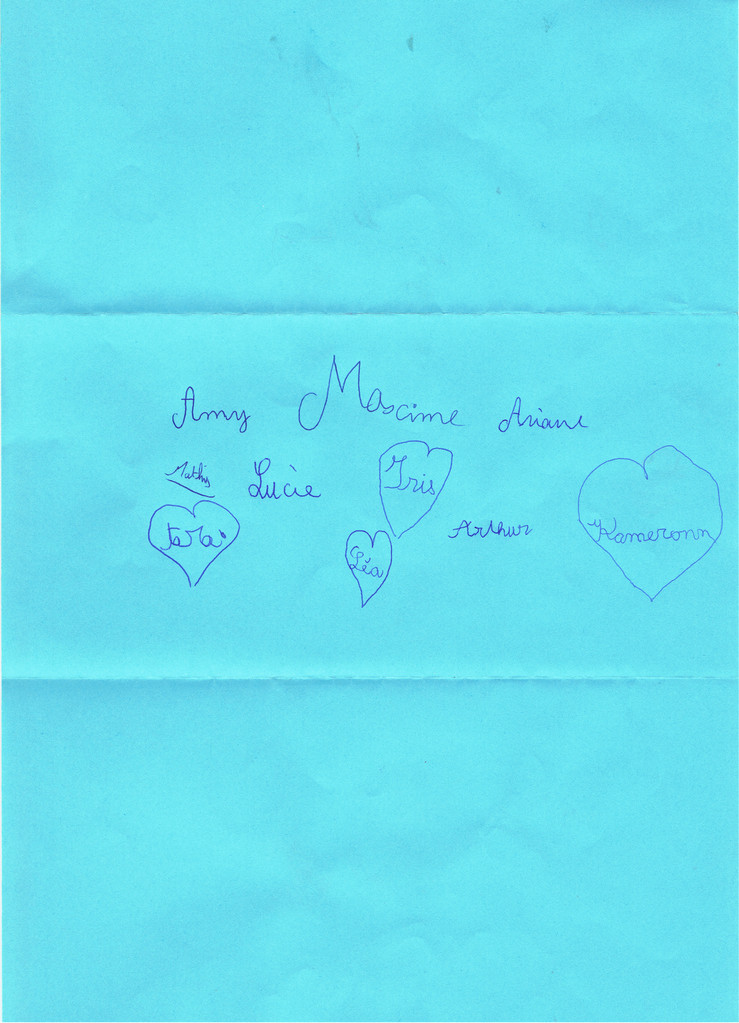 Amy Maxime Ariane
Mathis Lucie Iris
Tara Léa Arthur Kameronn